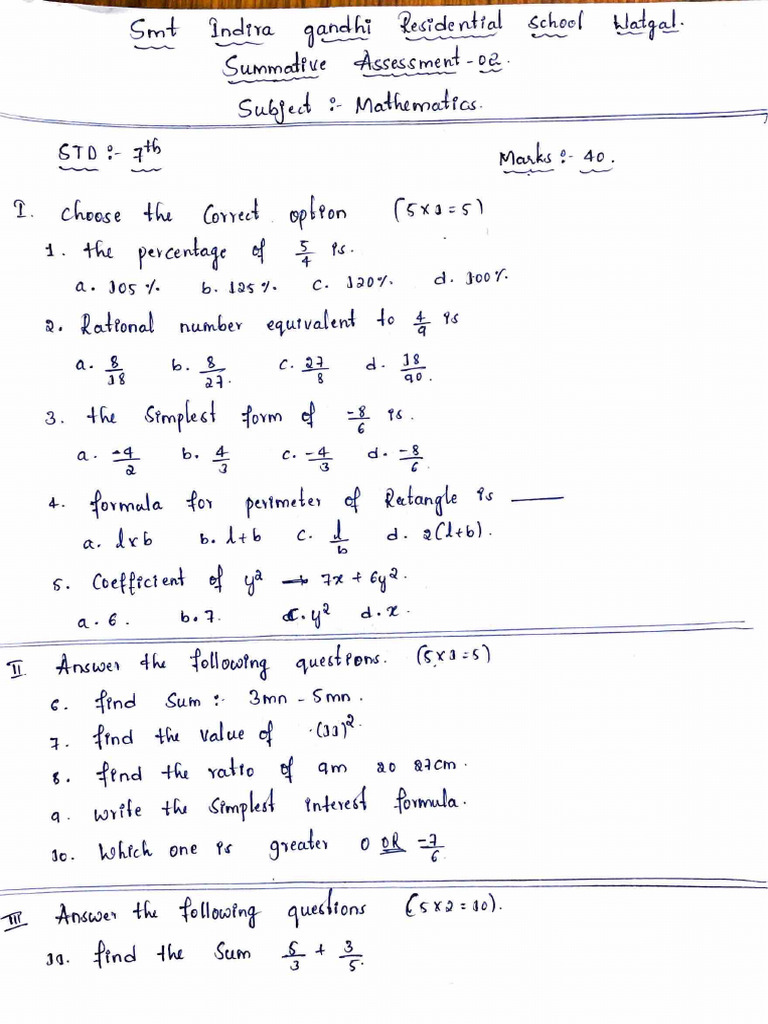 Smt Indira gandhi Residential School Watgal.
Summative Assessment - 02.
Subject :- Mathematics.
STD :- 7th Marks :- 40.
I. Choose the Correct option (5 x 1 = 5)
1. the percentage of 5/4 is.
a. 105 % b. 125 %. c. 120 %. d. 100 %.
2. Rational number equivalent to 4/9 is
a. 8/18 b. 8/27. c. 27/8 d. 18/90.
3. the Simplest form of -8/6 is.
a. -4/2 b. 4/3 c. -4/3 d. -8/6.
4. formula for perimeter of Ratangle is ___
a. l x b b. l + b c. l/b d. 2(l+b).
5. Coefficient of y² → 7x + 6y².
a. 6. b. 7. c. y² d. x.
II Answer the following questions. (5 x 1 = 5)
6. find Sum :- 3mn - 5mn.
7. find the value of (11)².
8. find the ratio of 9m to 27cm.
9. write the Simplest interest formula.
10. Which one is greater 0 OR -7/6
III Answer the following questions (5 x 2 = 10).
11. find the Sum 5/3 + 3/5.